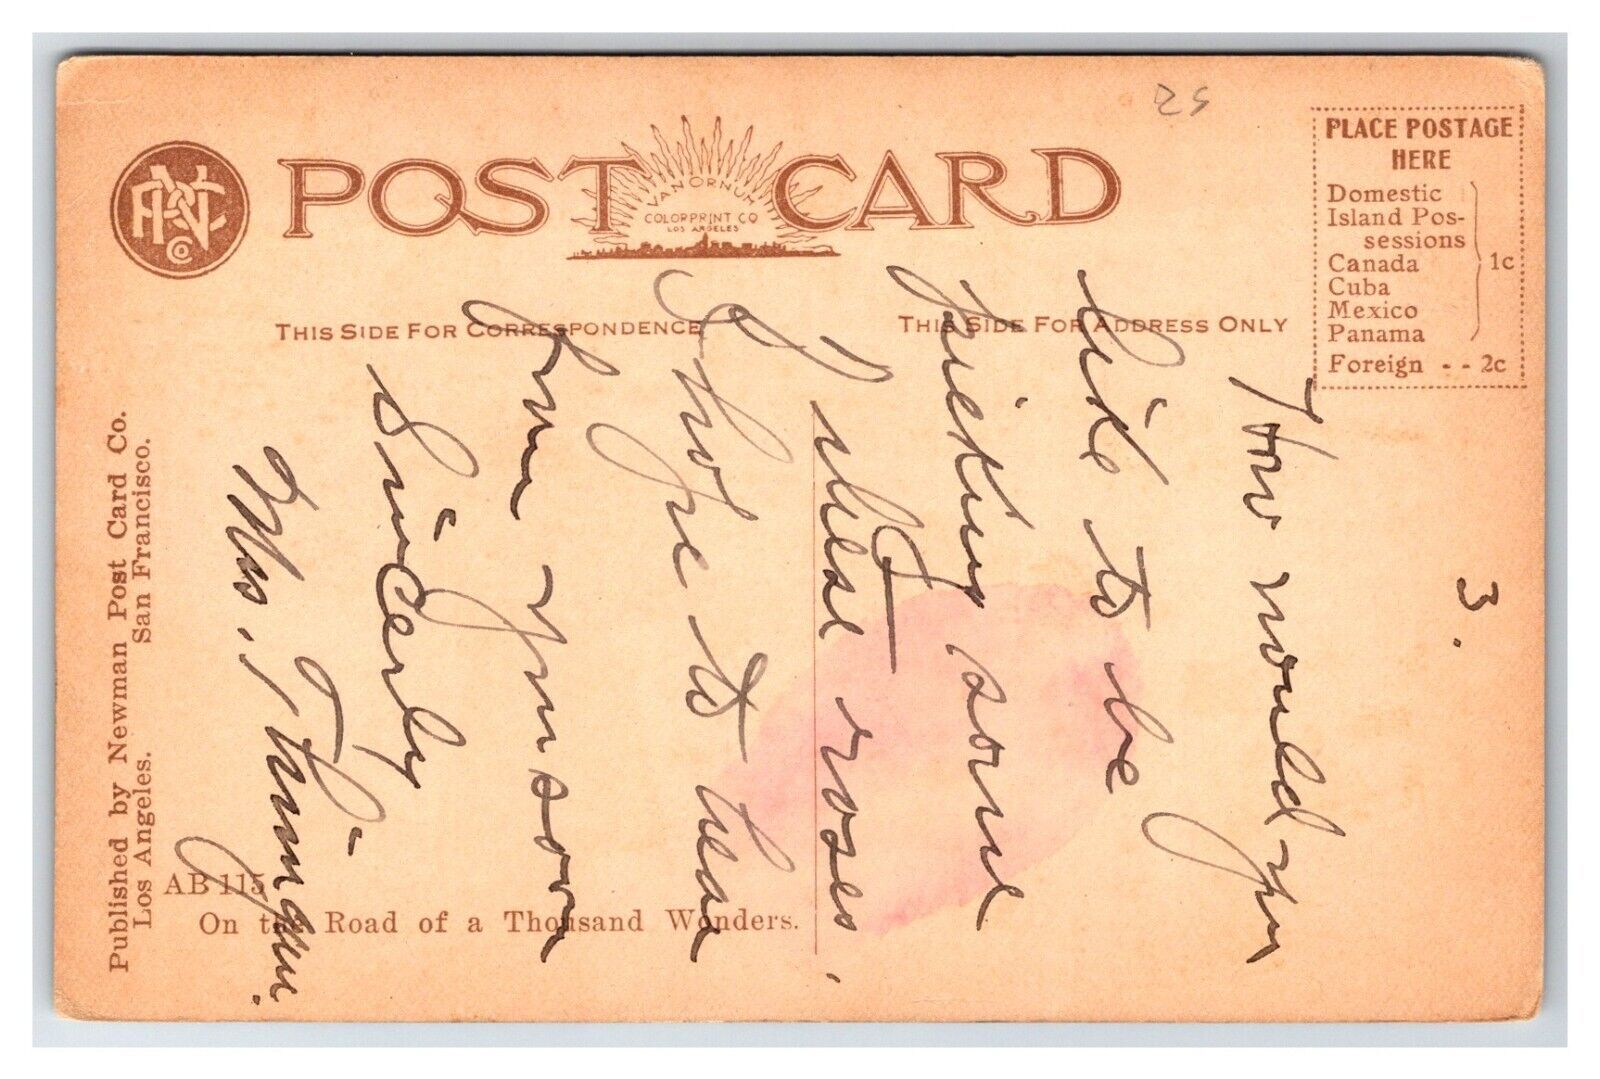 25
PLACE POSTAGE
HERE
Domestic
Island Pos-
sessions
Canada
Cuba
Mexico
Panama
1c
Foreign - - 2c
POST CARD
VAN ORNUM
COLORPRINT CO
LOS ANGELES
Co
THIS SIDE FOR CORRESPONDENCE
THIS SIDE FOR ADDRESS ONLY
3.
How would you
like to be
picking some
of these roses.
I hope to hear
from you soon
Sincerly
Mrs.
Published by Newman Post Card Co.
Los Angeles. San Francisco.
AB 115
On the Road of a Thousand Wonders.